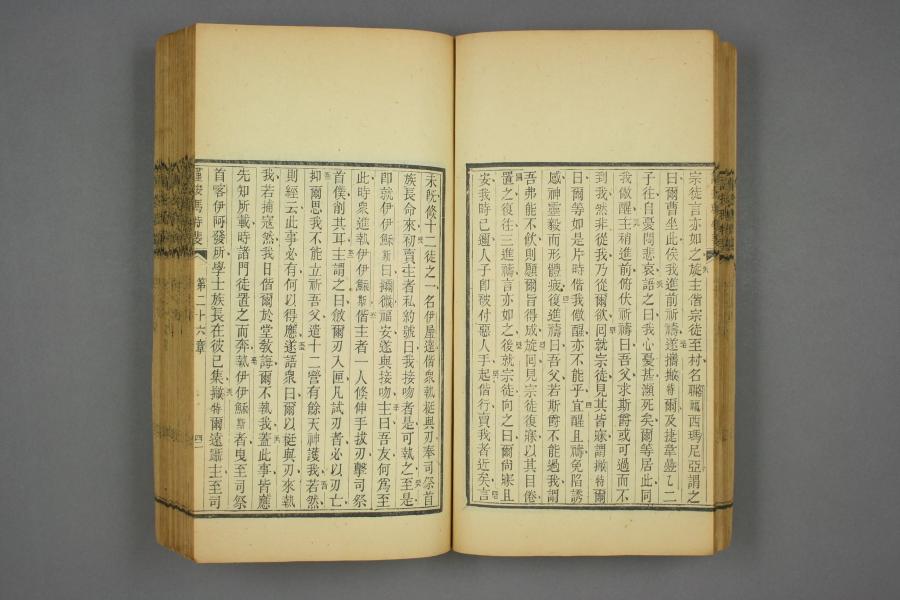 宗徒言亦如之旋主偕宗徒至村名瑪尼亞謂之
曰爾曹坐此俟我進前祈禱遂攜爾及捷二
子往自憂悶悲哀語之曰我心憂甚瀕死矣爾等居此同
我儆醒主稍進前俯伏祈禱曰吾父求斯爵或可過而不
到我然非從我乃從爾欲回就宗徒見其皆寐謂爾
曰爾等如是片時偕我儆醒亦不能乎宜醒且禱免陷誘
感神靈毅而形體疲復進禱曰吾父若斯爵不能過我謂
吾弗能不飲則願爾旨得成旋回見宗徒復寐以其目倦
置之復往三進禱言亦如之後就宗徒向之曰爾尚寐且
安我時已邇人子即被付惡人手起偕行賣我者近矣言
未既十二徒之一名伊屋達偕眾執梃與刃奉司祭首
族長命來初賣主者私約號曰我接吻者是可執之至是
即就伊伊穌斯曰福安遂與接吻主曰吾友何為至
此時眾進執伊伊穌斯偕主者一人倏伸手拔刃擊司祭
首僕削其耳主謂之曰斂爾刃入匣凡試刃者必以刃亡
抑爾思我不能立祈吾父遣十二營有餘天神護我若然
則經云此事必有何以得應遂語眾曰爾以梃與刃來執
我若捕寇然我日偕爾於堂教誨爾不執我蓋此事皆應
先知所載時諸門徒置之而奔執伊伊穌斯者曳至司祭
首客伊阿發所學士族長在彼已集爾遠躡主至司
第二十六章
四